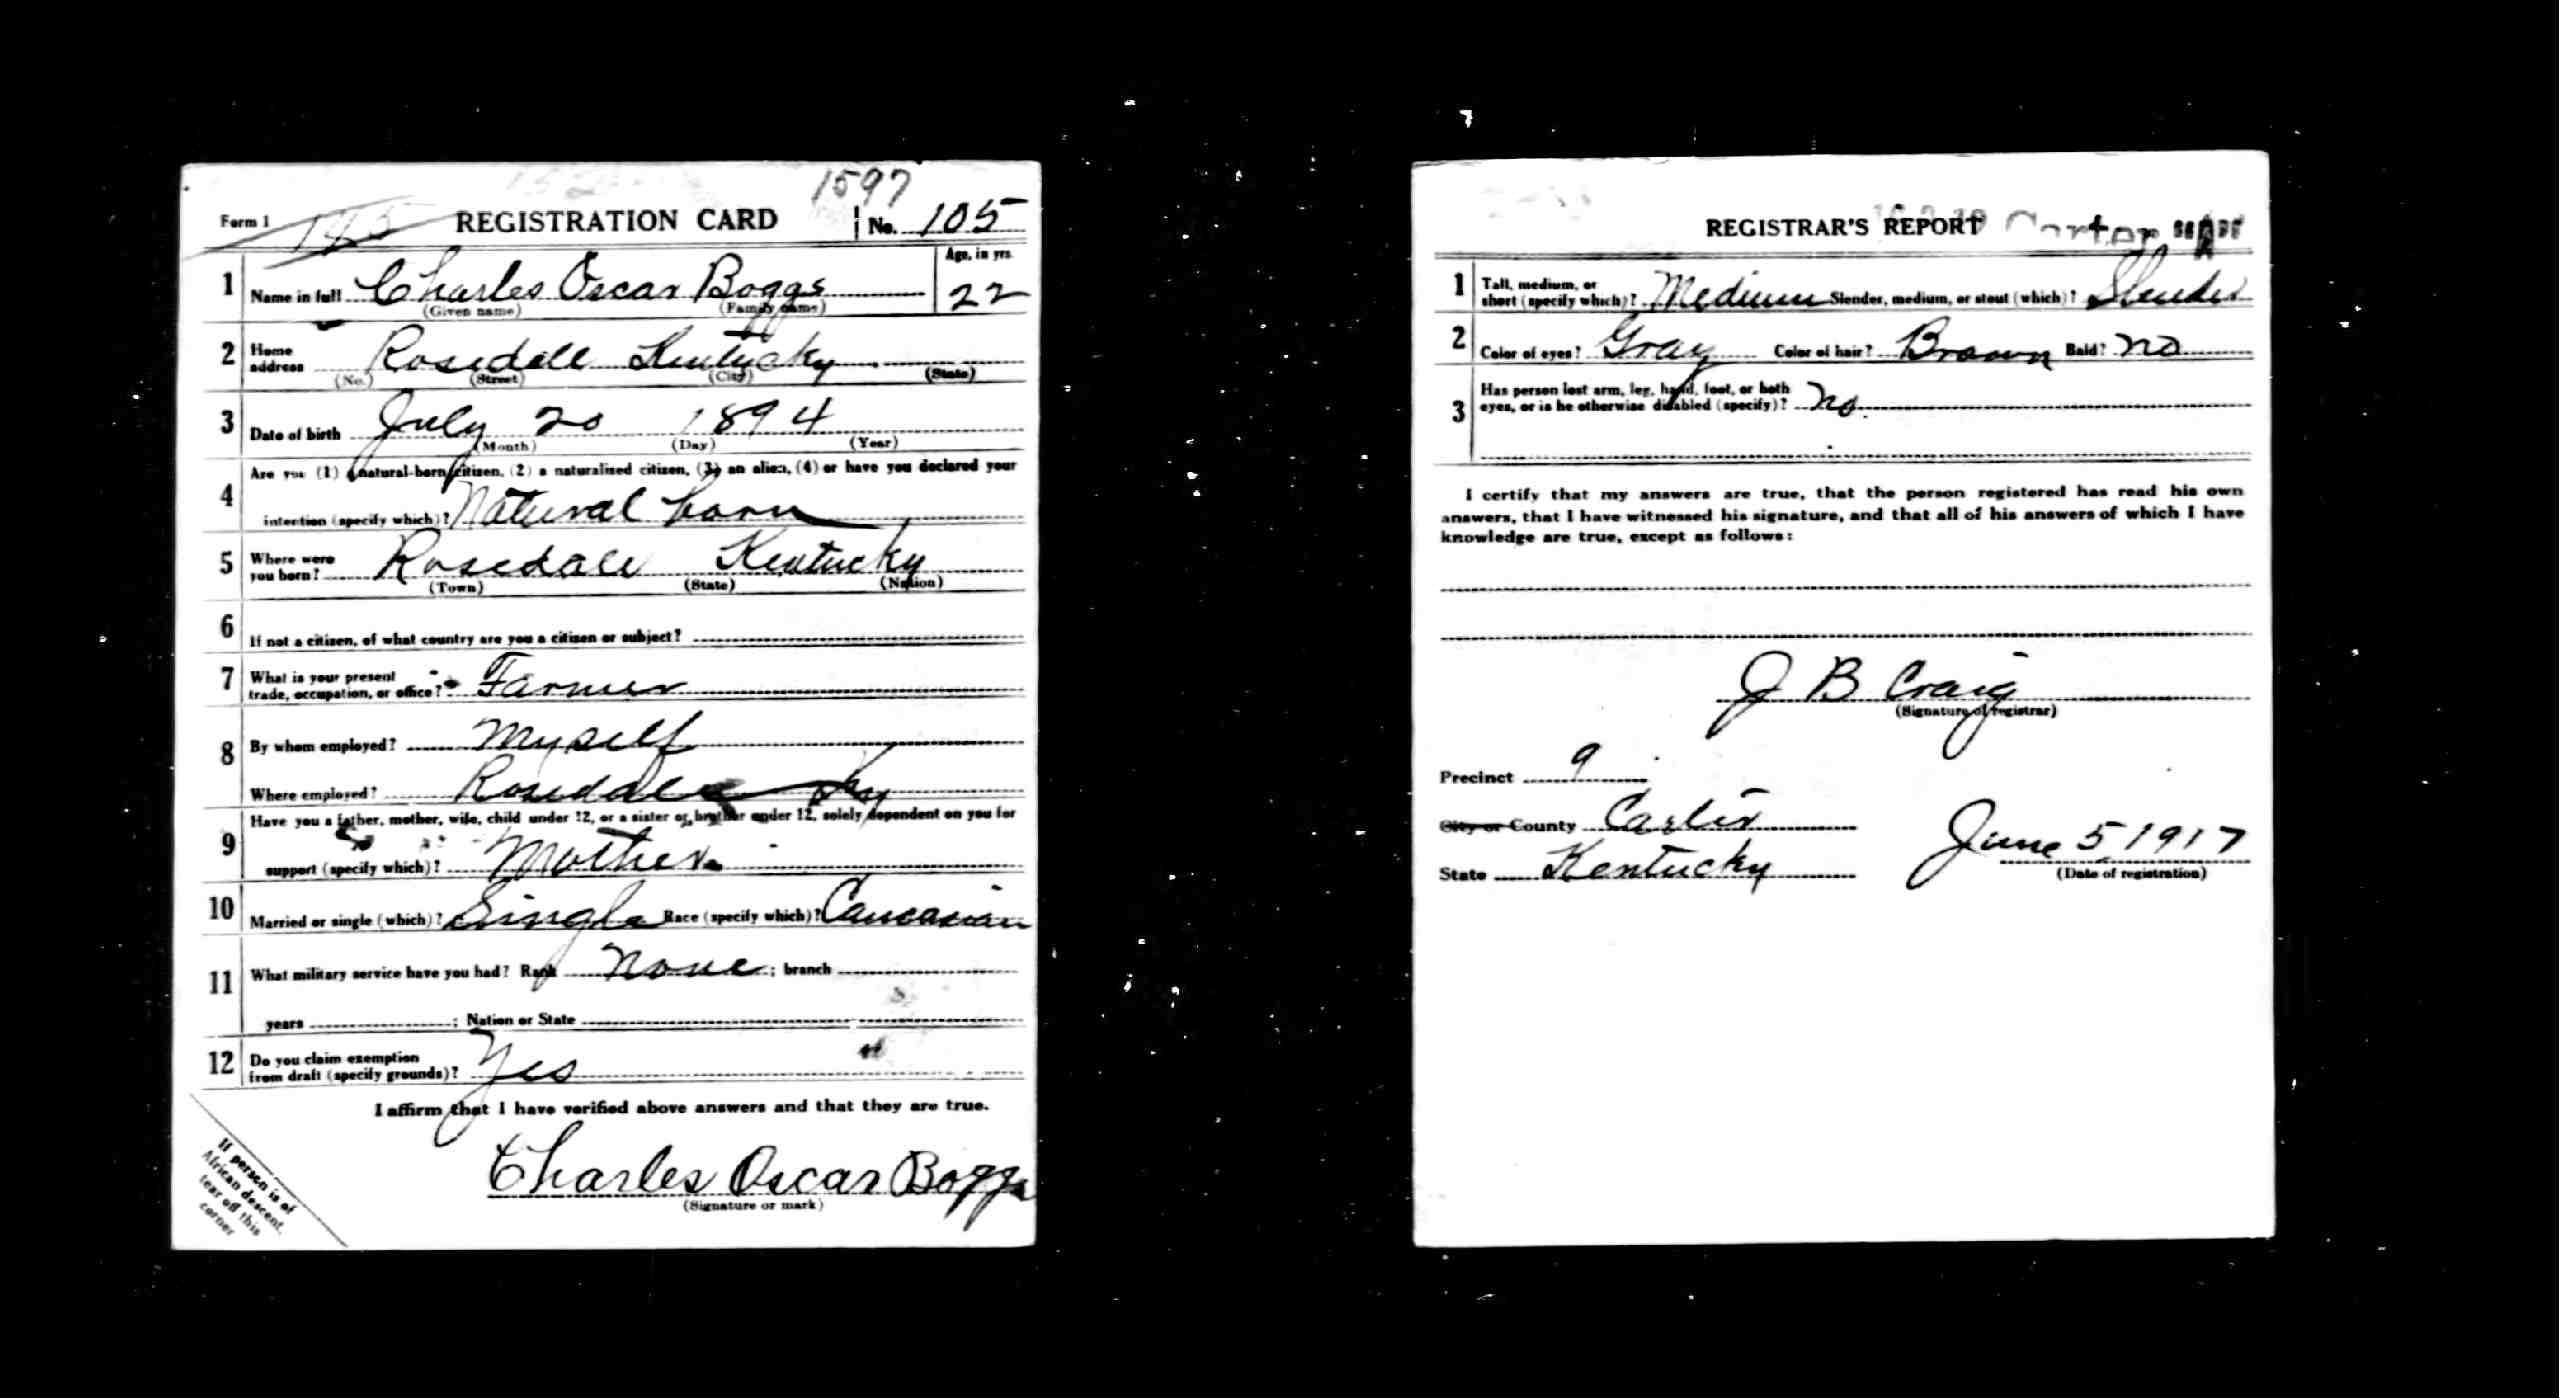 1597
Form 1 REGISTRATION CARD No. 105
1 Name in full Charles Oscar Boggs Age, in yrs. 22
(Given name) (Family name)
2 Home address Rosedale Kentucky
(No.) (Street) (City) (State)
3 Date of birth July 20 1894
(Month) (Day) (Year)
4 Are you (1) a natural-born citizen, (2) a naturalized citizen, (3) an alien, (4) or have you declared your
intention (specify which)? Natural born
5 Where were you born? Rosedale Kentucky
(Town) (State) (Nation)
6 If not a citizen, of what country are you a citizen or subject?
7 What is your present trade, occupation, or office? Farmer
8 By whom employed? Myself
Where employed? Rosedale Ky
9 Have you a father, mother, wife, child under 12, or a sister or brother under 12, solely dependent on you for
support (specify which)? Mother
10 Married or single (which)? Single Race (specify which)? Caucasian
11 What military service have you had? Rank None ; branch
years ; Nation or State
12 Do you claim exemption from draft (specify grounds)? Yes
I affirm that I have verified above answers and that they are true.
Charles Oscar Boggs
(Signature or mark)
If person is of
African descent,
tear off this
corner
REGISTRAR'S REPORT Carter
1 Tall, medium, or short (specify which)? Medium Slender, medium, or stout (which)? Slender
2 Color of eyes? Gray Color of hair? Brown Bald? no
3 Has person lost arm, leg, hand, foot, or both
eyes, or is he otherwise disabled (specify)? no.
I certify that my answers are true, that the person registered has read his own
answers, that I have witnessed his signature, and that all of his answers of which I have
knowledge are true, except as follows:
J B Craig
(Signature of registrar)
Precinct 9
City or County Carter
State Kentucky June 5 1917
(Date of registration)